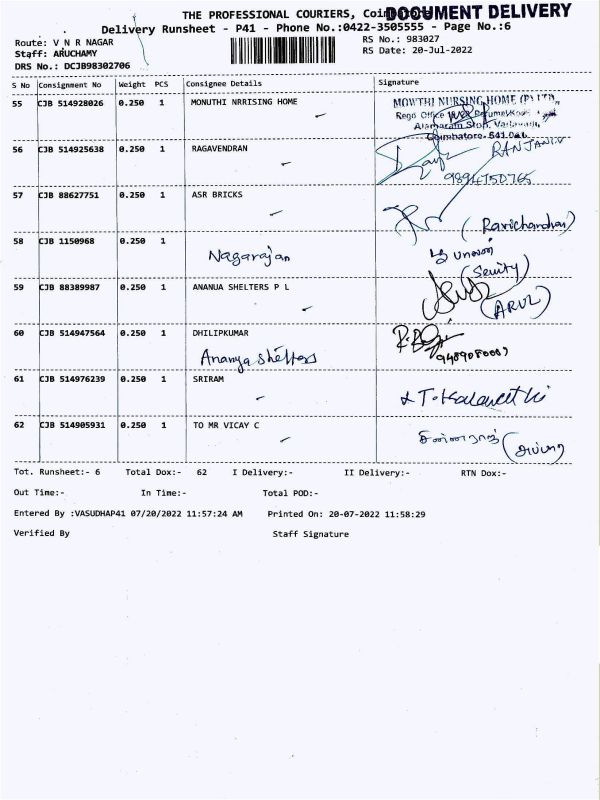 THE PROFESSIONAL COURIERS, Coimbatore
DOCUMENT DELIVERY
Delivery Runsheet - P41 - Phone No.:0422-3505555 - Page No.:6
Route: V N R NAGAR
RS No.: 983027
Staff: ARUCHAMY
RS Date: 20-Jul-2022
DRS No.: DCJB98302706
S No Consignment No Weight PCS Consignee Details Signature
55 CJB 514928026 0.250 1 MONUTHI NRRISING HOME
MOWTHI NURSING HOME (P) LTD,
Rego Office
Alamaram Stop,
Coimbatore-641
56 CJB 514925638 0.250 1 RAGAVENDRAN
RANJANI.V
9894750765
57 CJB 88627751 0.250 1 ASR BRICKS
(Ravichandran)
58 CJB 1150968 0.250 1
Nagarajan
(Seuity)
59 CJB 88389987 0.250 1 ANANUA SHELTERS P L
(ARUL)
60 CJB 514947564 0.250 1 DHILIPKUMAR
Ananya Shelters
61 CJB 514976239 0.250 1 SRIRAM
62 CJB 514905931 0.250 1 TO MR VICAY C
Tot. Runsheet:- 6 Total Dox:- 62 I Delivery:- II Delivery:- RTN Dox:-
Out Time:- In Time:- Total POD:-
Entered By :VASUDHAP41 07/20/2022 11:57:24 AM Printed On: 20-07-2022 11:58:29
Verified By Staff Signature